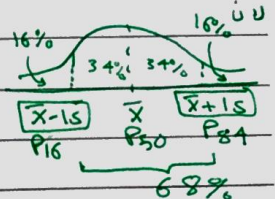 16% 16%
34% 34%
x̄-1s x̄ x̄+1s
P16 P50 P84
68%